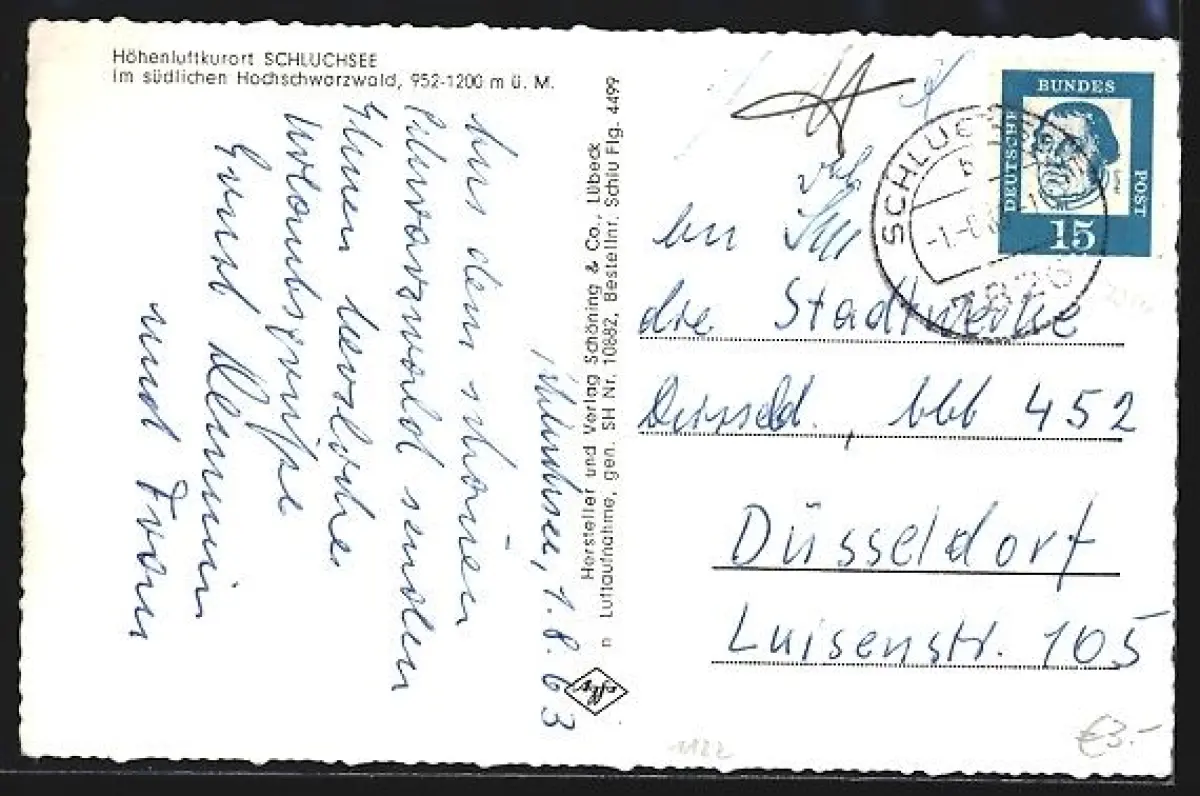 Höhenluftkurort SCHLUCHSEE
im südlichen Hochschwarzwald, 952-1200 m ü. M.
Schluchsee, 1. 8. 63
Aus dem schönen
Schwarzwald senden
Ihnen herzliche
Urlaubsgrüße
und Frau
Hersteller und Verlag Schöning & Co., Lübeck
n Luftaufnahme, gen. SH Nr. 10882, Bestellnr. Schlu Flg. 4499
BUNDES
DEUTSCHE
POST
15
SCHLUCHSEE
An
die Stadtwerke
Düsseld., Abt 452
Düsseldorf
Luisenstr. 105
€3.-